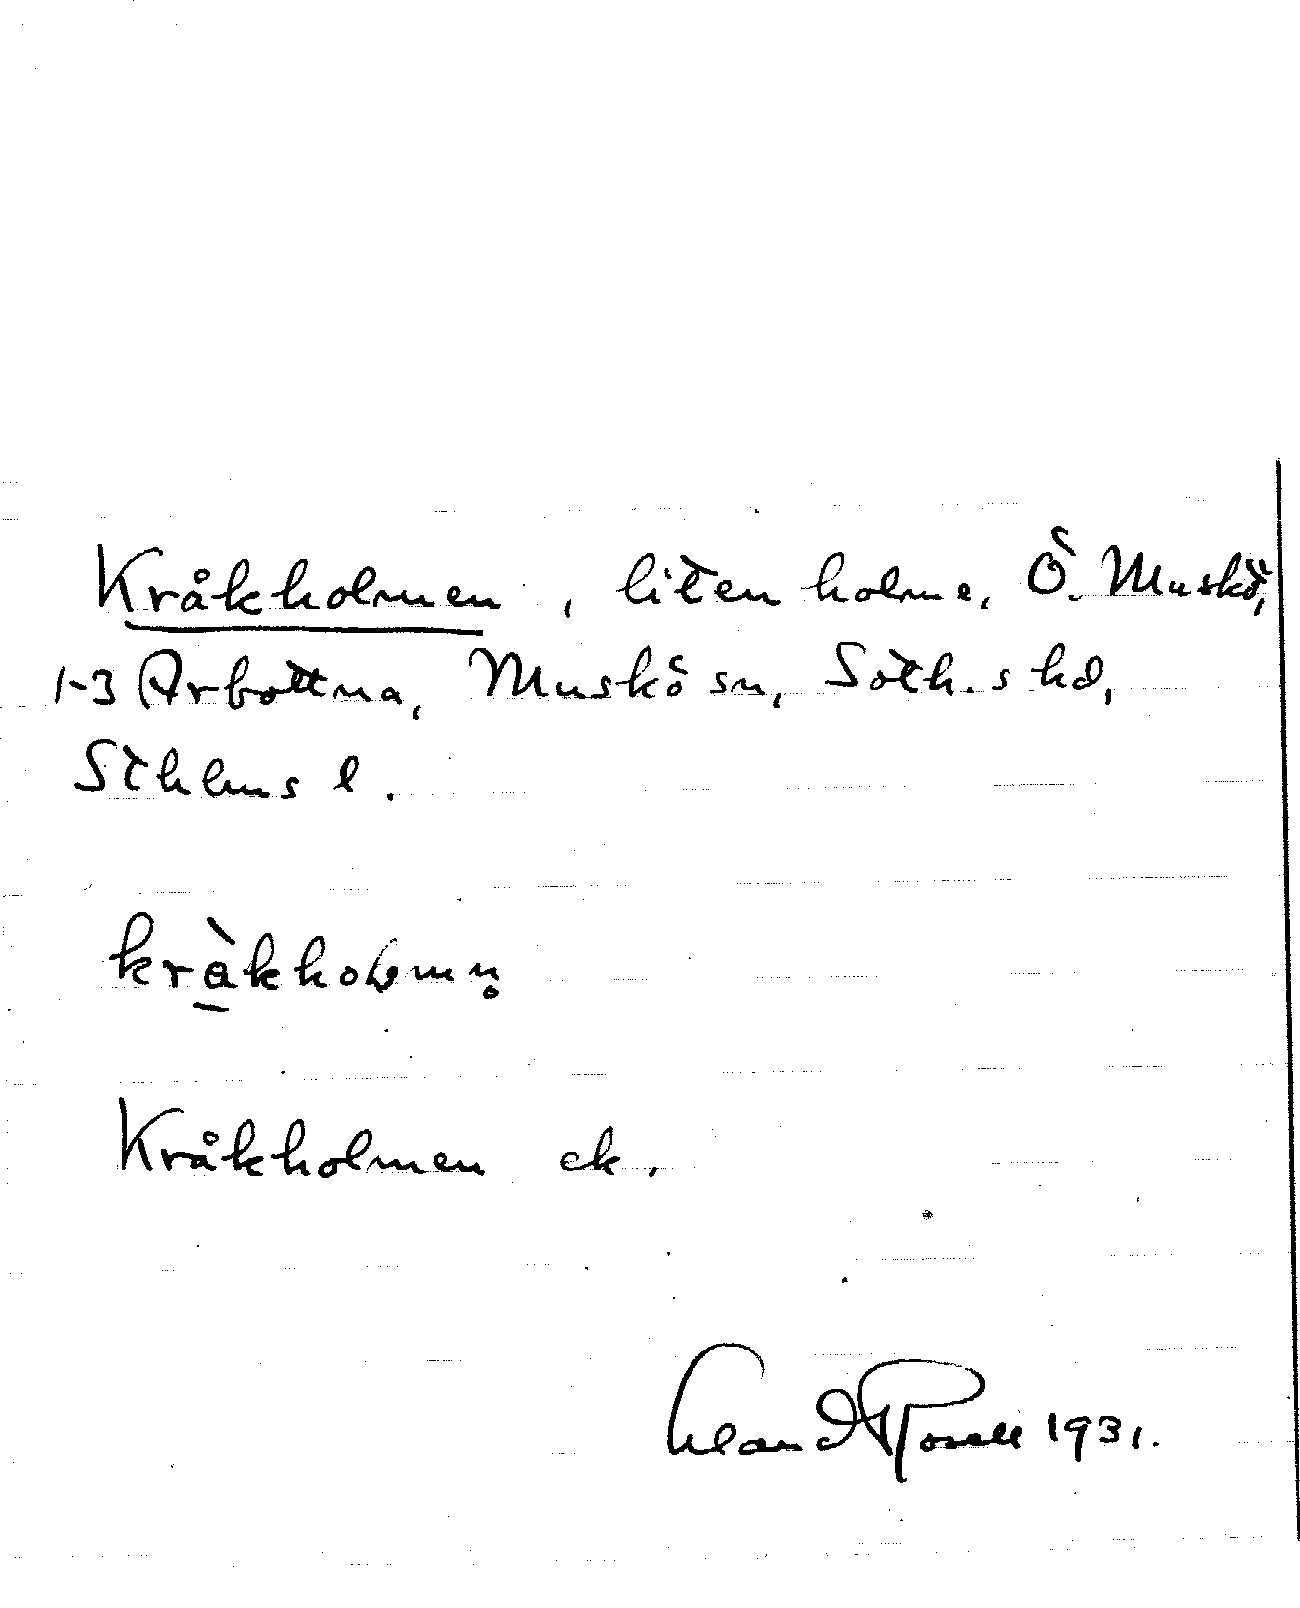 Kråkholmen, liten holme, Ö. Muskö,
1-3 Arbottna, Muskö sn, Soth.s hd,
Sthlms l.
kràkholmn̥
Kråkholmen ek.
1931.